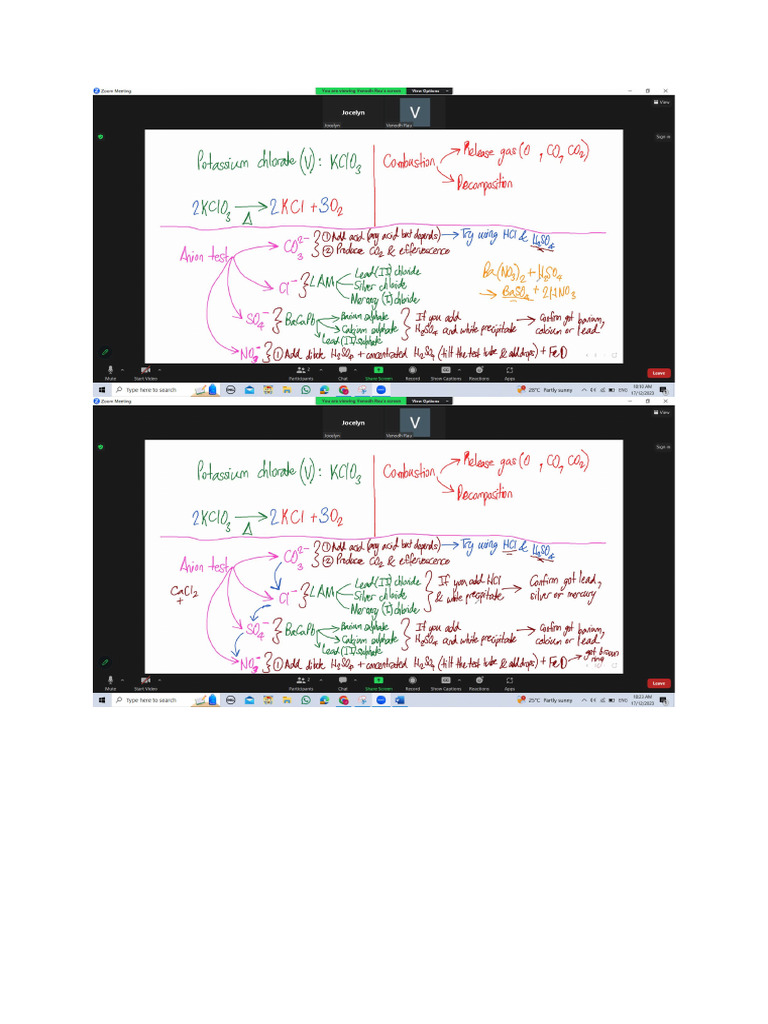 Zoom Meeting
You are viewing Venodh Rau's screen
View Options
View
Jocelyn
V
Jocelyn
Venodh Rau
Sign in
Potassium chlorate (V): KClO3
Combustion
Release gas (O , CO, CO2)
Decomposition
2KClO3 → 2KCl + 3O2
Δ
Anion test
CO3 2-
① Add acid (any acid but depends) → Try using HCl & H2SO4
② Produce CO2 & effervescence
Cl-
LAM
Lead (II) chloride
Silver chloride
Mercury (I) chloride
Ba(NO3)2 + H2SO4
→ BaSO4 + 2HNO3
SO4-
BaCaPb
Barium sulphate
Calcium sulphate
Lead (II) sulphate
If you add
H2SO4 and white precipitate
Confirm got barium,
calcium or lead.
NO3-
① Add dilute H2SO4 + concentrated H2SO4 (tilt the test tube & add drops) + Fe
Mute
Start Video
Participants
2
Chat
Share Screen
Record
Show Captions
Reactions
Apps
Leave
Type here to search
28°C Partly sunny
ENG
10:10 AM
17/12/2023
Zoom Meeting
You are viewing Venodh Rau's screen
View Options
View
Jocelyn
V
Jocelyn
Venodh Rau
Sign in
Potassium chlorate (V): KClO3
Combustion
Release gas (O , CO, CO2)
Decomposition
2KClO3 → 2KCl + 3O2
Δ
Anion test
CaCl2
+
CO3 2-
① Add acid (any acid but depends) → Try using HCl & H2SO4
② Produce CO2 & effervescence
Cl-
LAM
Lead (II) chloride
Silver chloride
Mercury (I) chloride
If you add HCl
& white precpitate
Confirm got lead,
silver or mercury
SO4-
BaCaPb
Barium sulphate
Calcium sulphate
Lead (II) sulphate
If you add
H2SO4 and white precipitate
Confirm got barium,
calcium or lead.
NO3-
① Add dilute H2SO4 + concentrated H2SO4 (tilt the test tube & add drops) + Fe
got brown
ring
Mute
Start Video
Participants
2
Chat
Share Screen
Record
Show Captions
Reactions
Apps
Leave
Type here to search
25°C Partly sunny
ENG
10:23 AM
17/12/2023